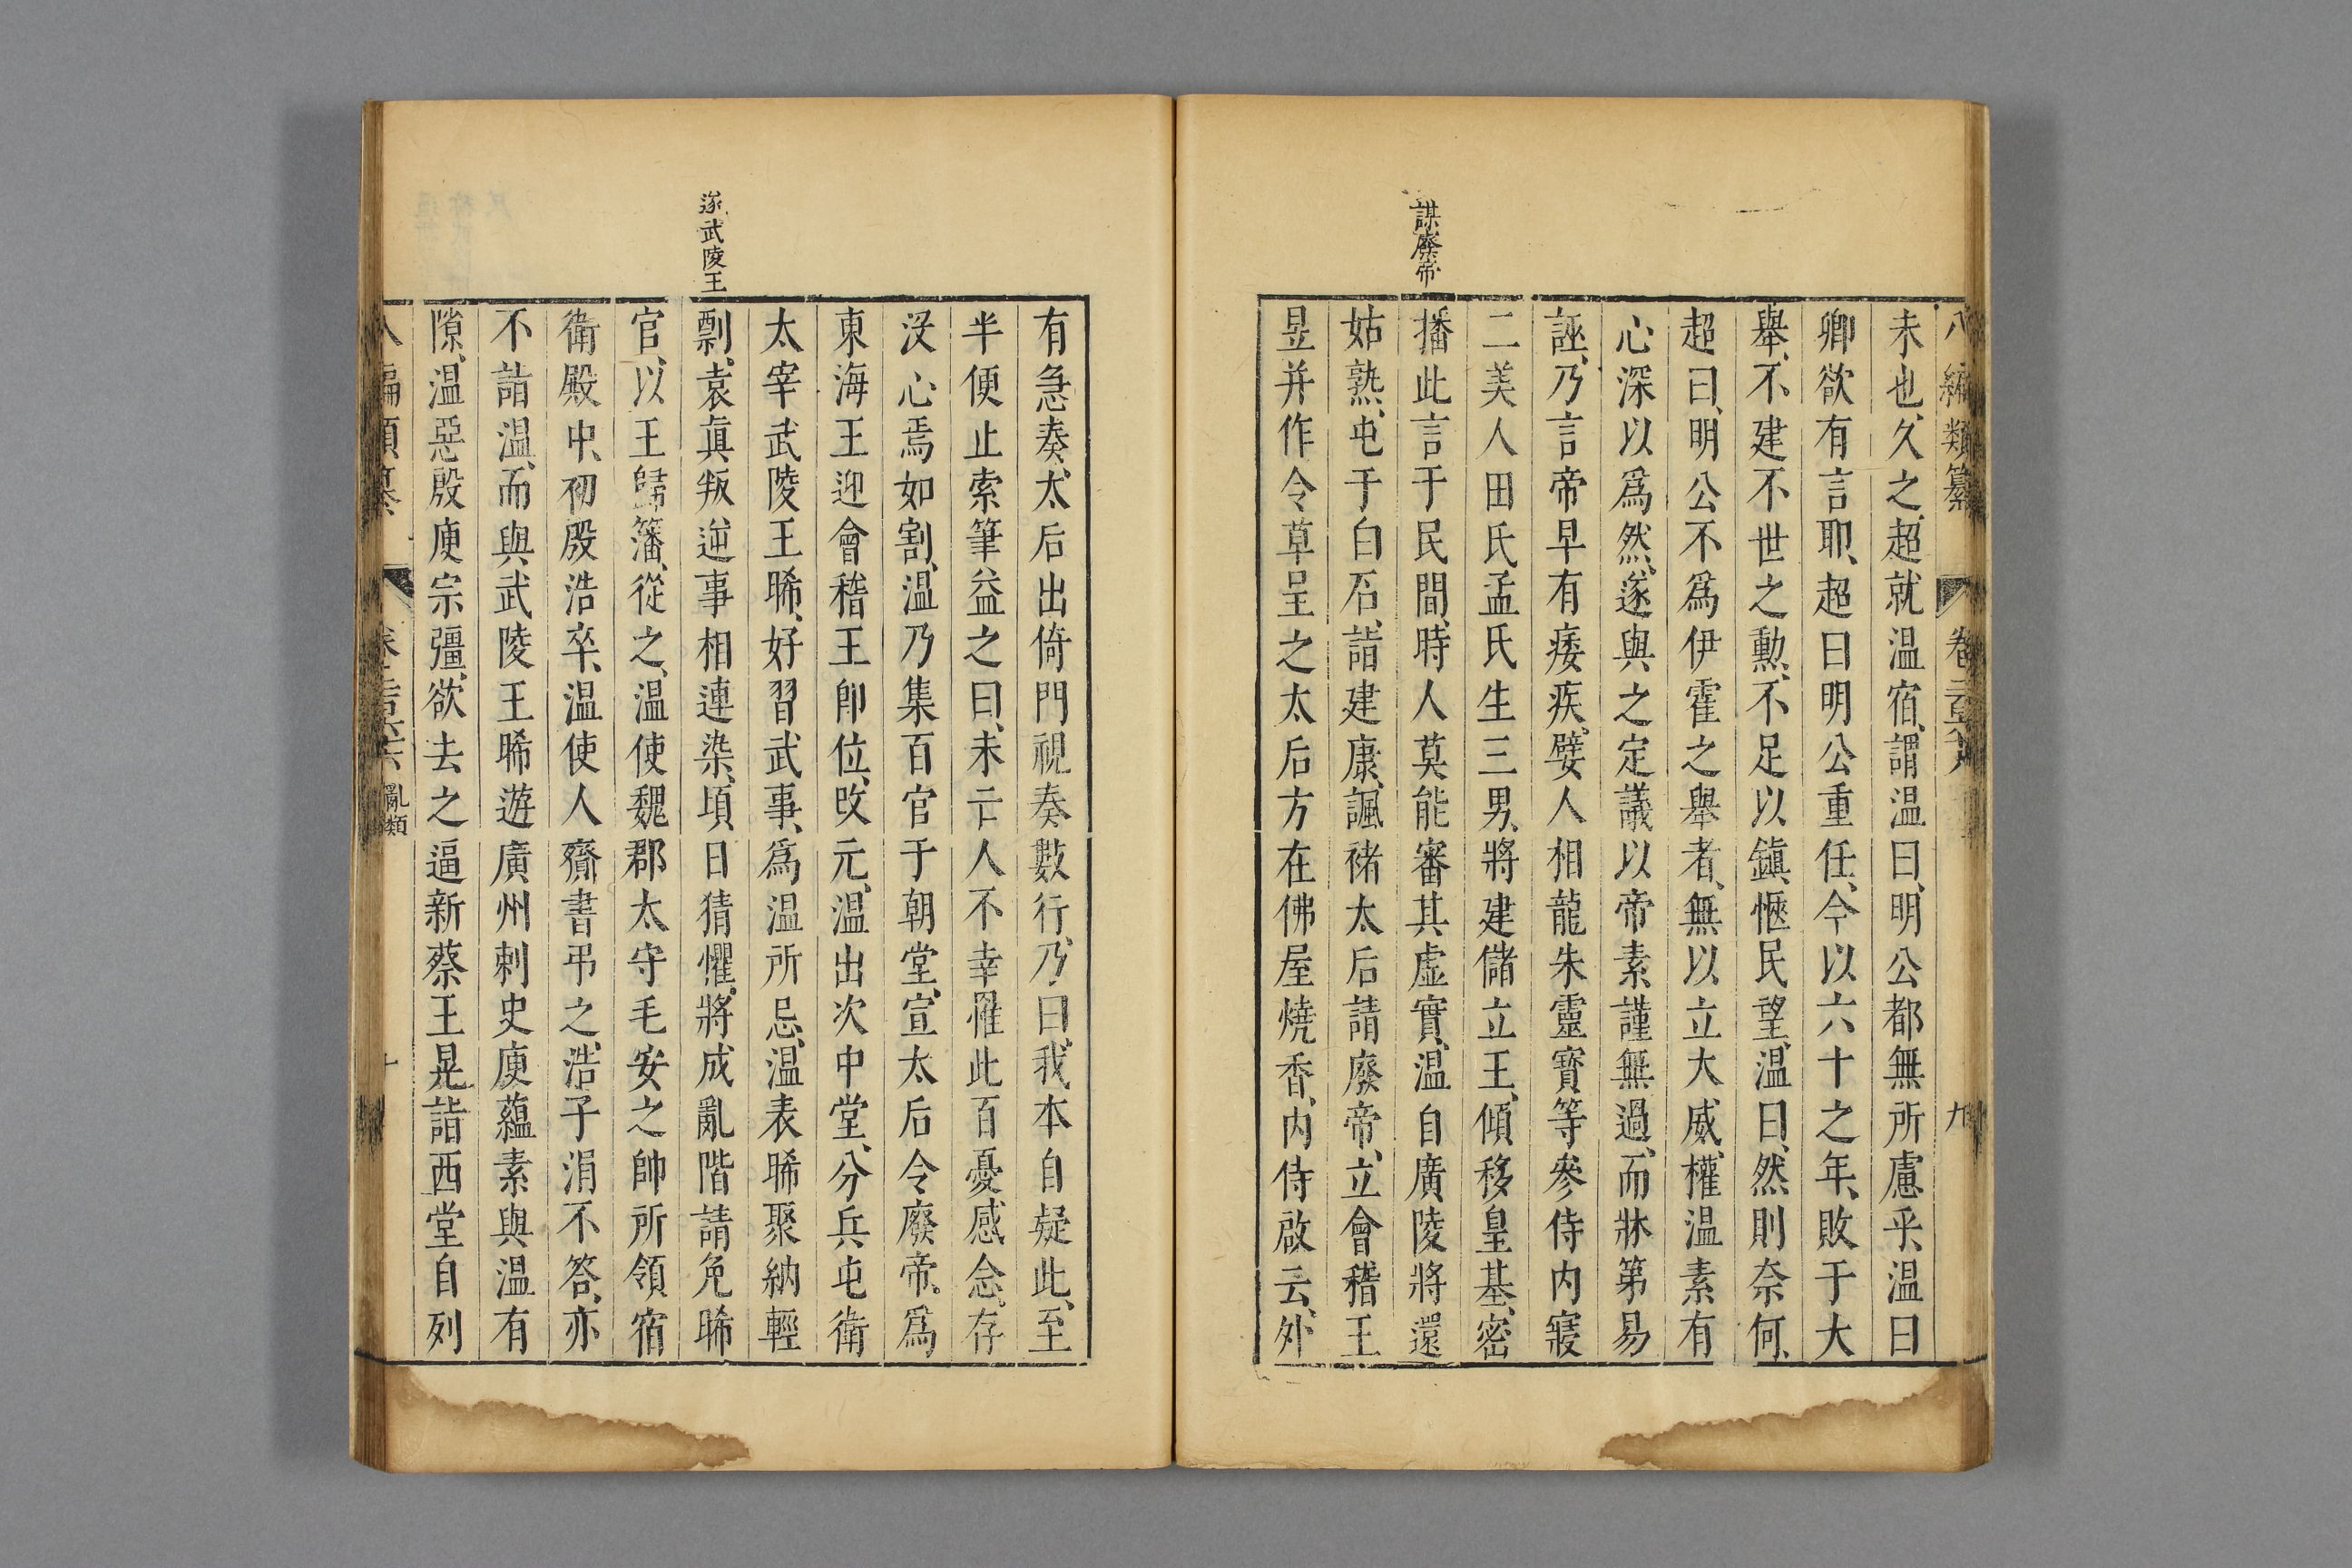 八編類纂 卷二百六 九
未也、久之、超就温宿、謂温曰、明公都無所慮乎、温曰
卿欲有言耶、超曰明公重任、今以六十之年、敗于大
舉、不建不世之勲、不足以鎮愜民望、温曰、然則奈何、
超曰、明公不爲伊霍之舉者、無以立大威、權温素有
心深以爲然、遂與之定議以帝素謹無過、而牀第易
誣、乃言帝早有痿疾、嬖人相龍朱靈寳等參侍内寢
二美人田氏孟氏生三男、將建儲立王、傾移皇基、密
謀廢帝
播此言于民間、時人莫能審其虛實、温自廣陵將還
姑熟、屯于白石、詣建康、諷褚太后請廢帝、立會稽王
昱并作令草呈之太后方在佛屋燒香、内侍啟云、外
有急奏、太后出倚門視奏數行、乃曰、我本自疑此、至
半便止索筆益之曰、未亡人不幸罹此百憂感念、存
没心焉如割、温乃集百官于朝堂、宣太后令廢帝。爲
東海王迎會稽王卽位、改元、温出次中堂、分兵屯衛
太宰武陵王晞、好習武事、爲温所忌、温表晞聚納輕
逐武陵王
剽、袁眞叛逆事相連染、頃日猜懼、將成亂階請免晞
官、以王歸藩、從之、温使魏郡太守毛安之帥所領宿
衛殿中、初殷浩卒、温使人齎書弔之、浩子涓不答、亦
不詣温、而與武陵王晞遊廣州刺史庾蘊素與温有
隙、温惡殷庾宗彊、欲去之逼新蔡王晃詣西堂自列
編類纂 亂類 十